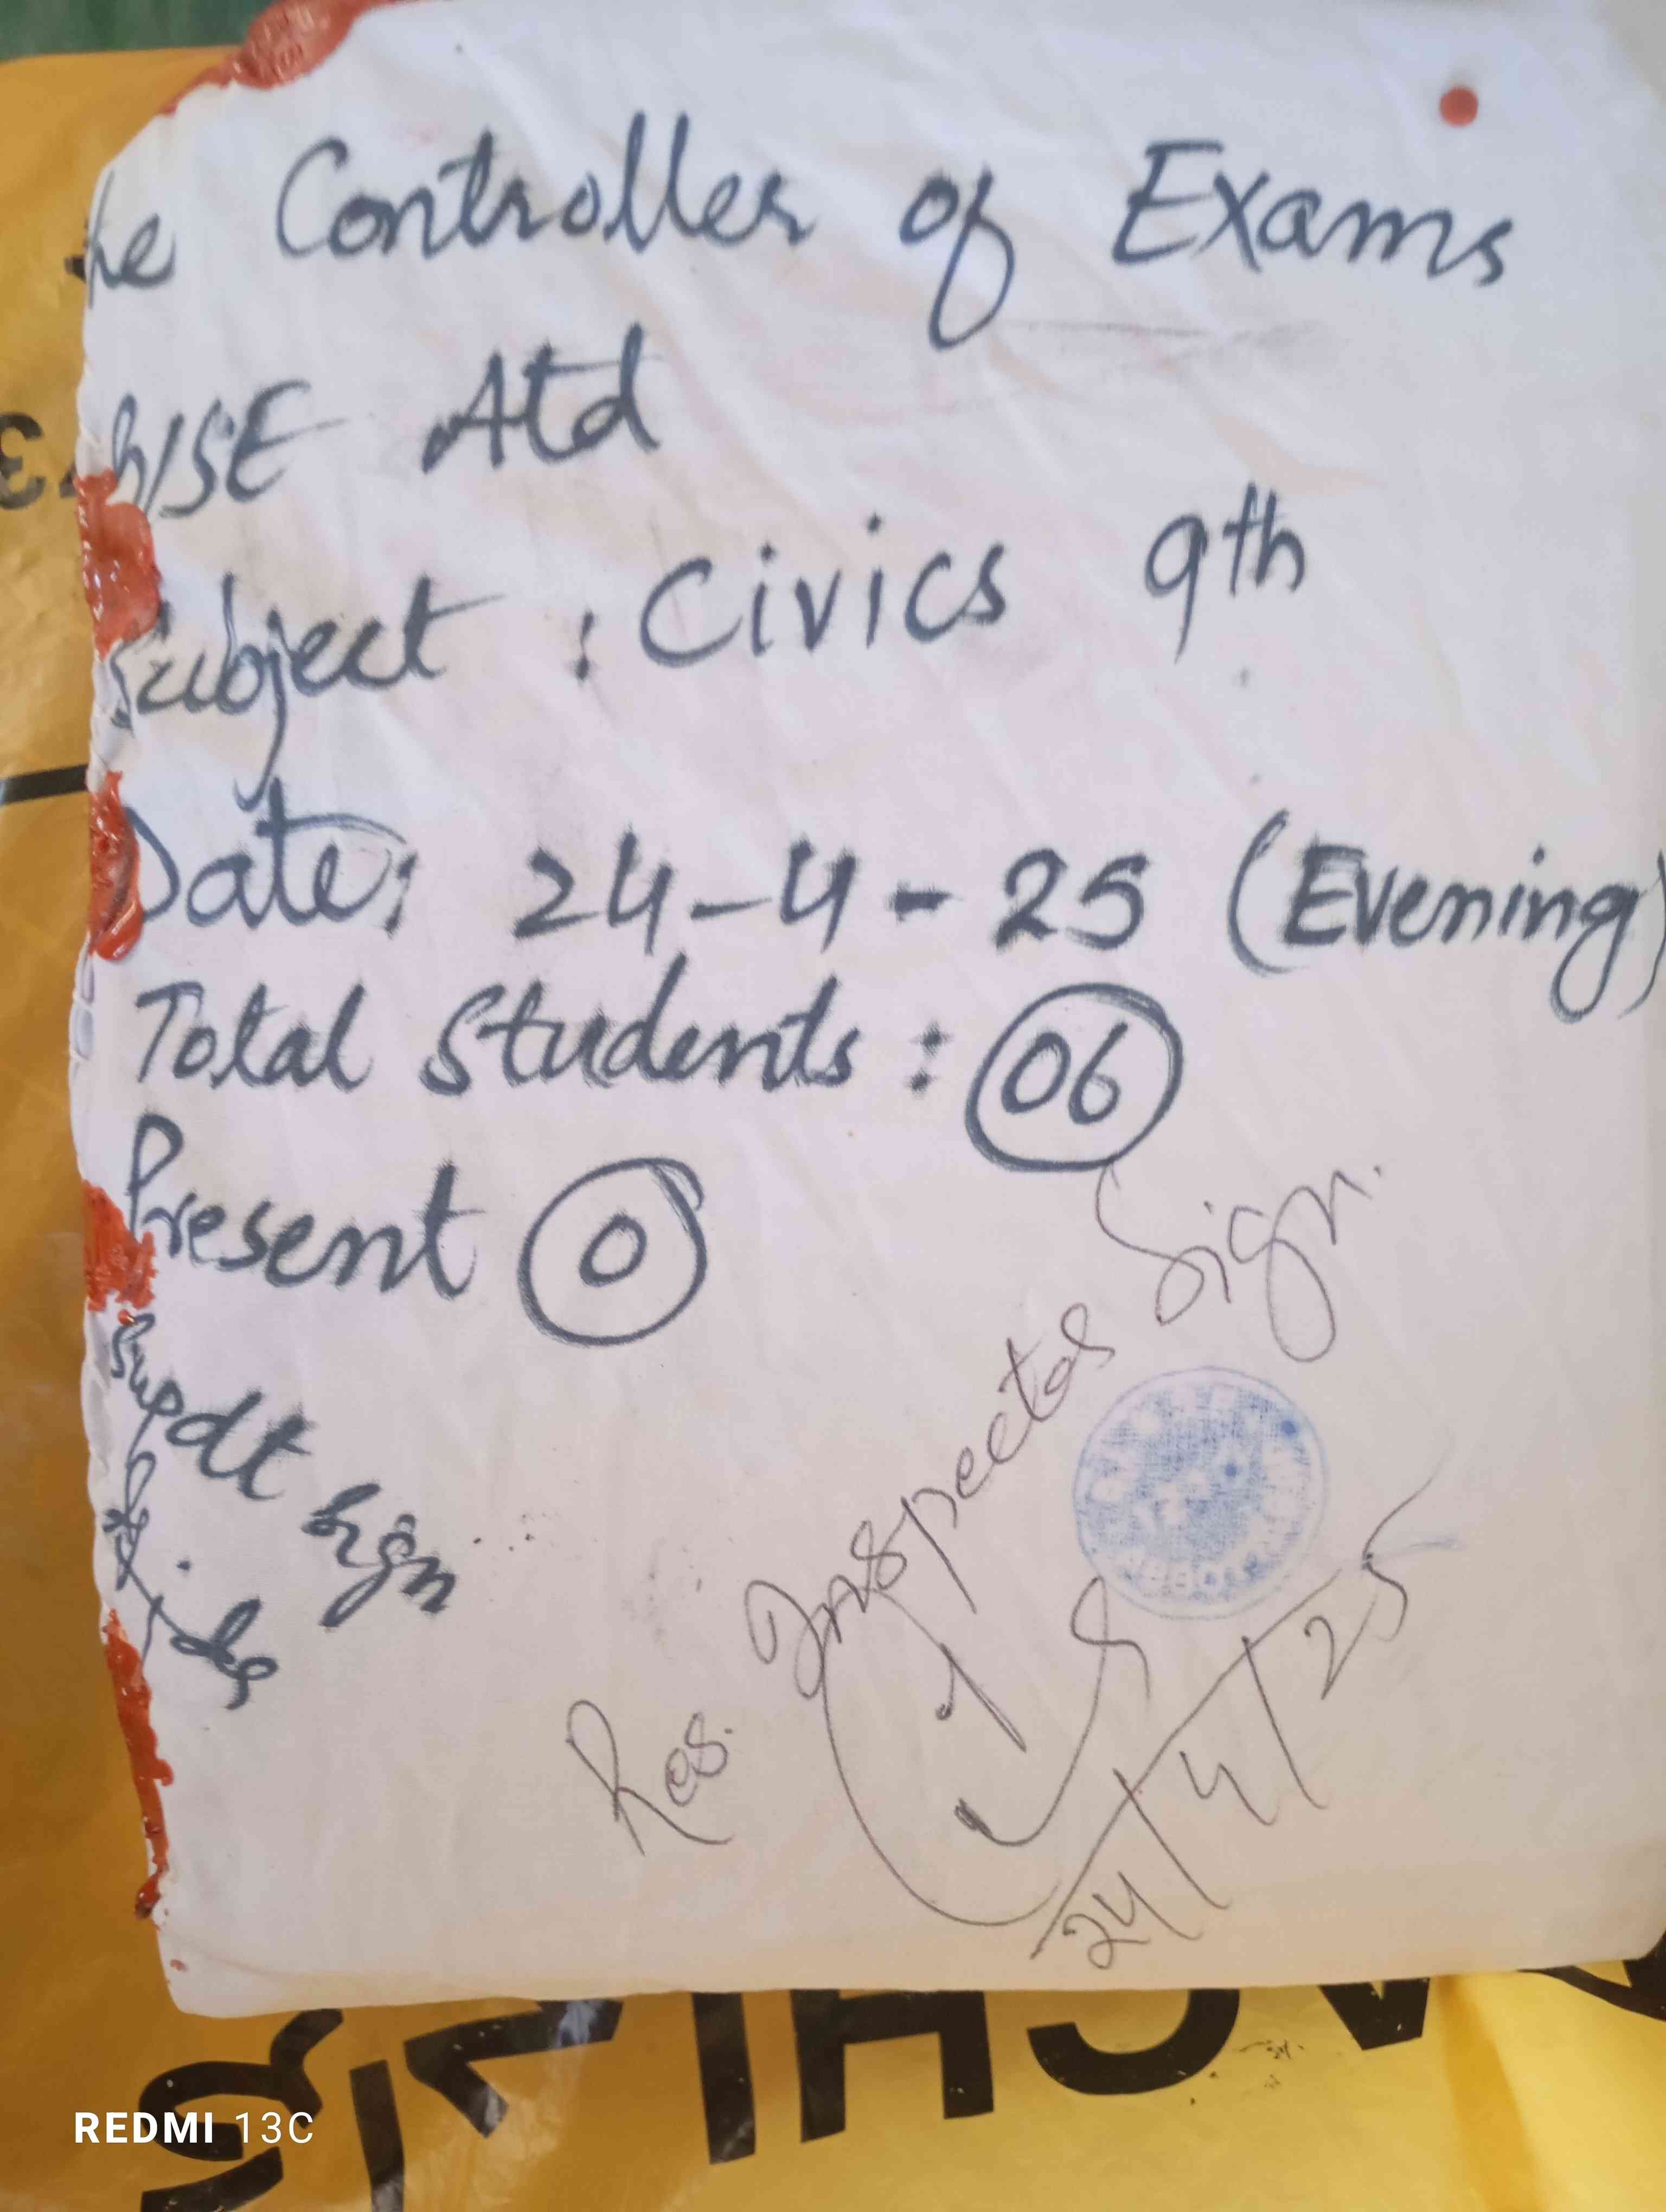 he Controller of Exams
BISE Atd
Subject : Civics 9th
Date: 24-4-25 (Evening)
Total Students : 06
Present 0
Supdt Sign
Res. Inspector Sign.
24/4/25
REDMI 13C